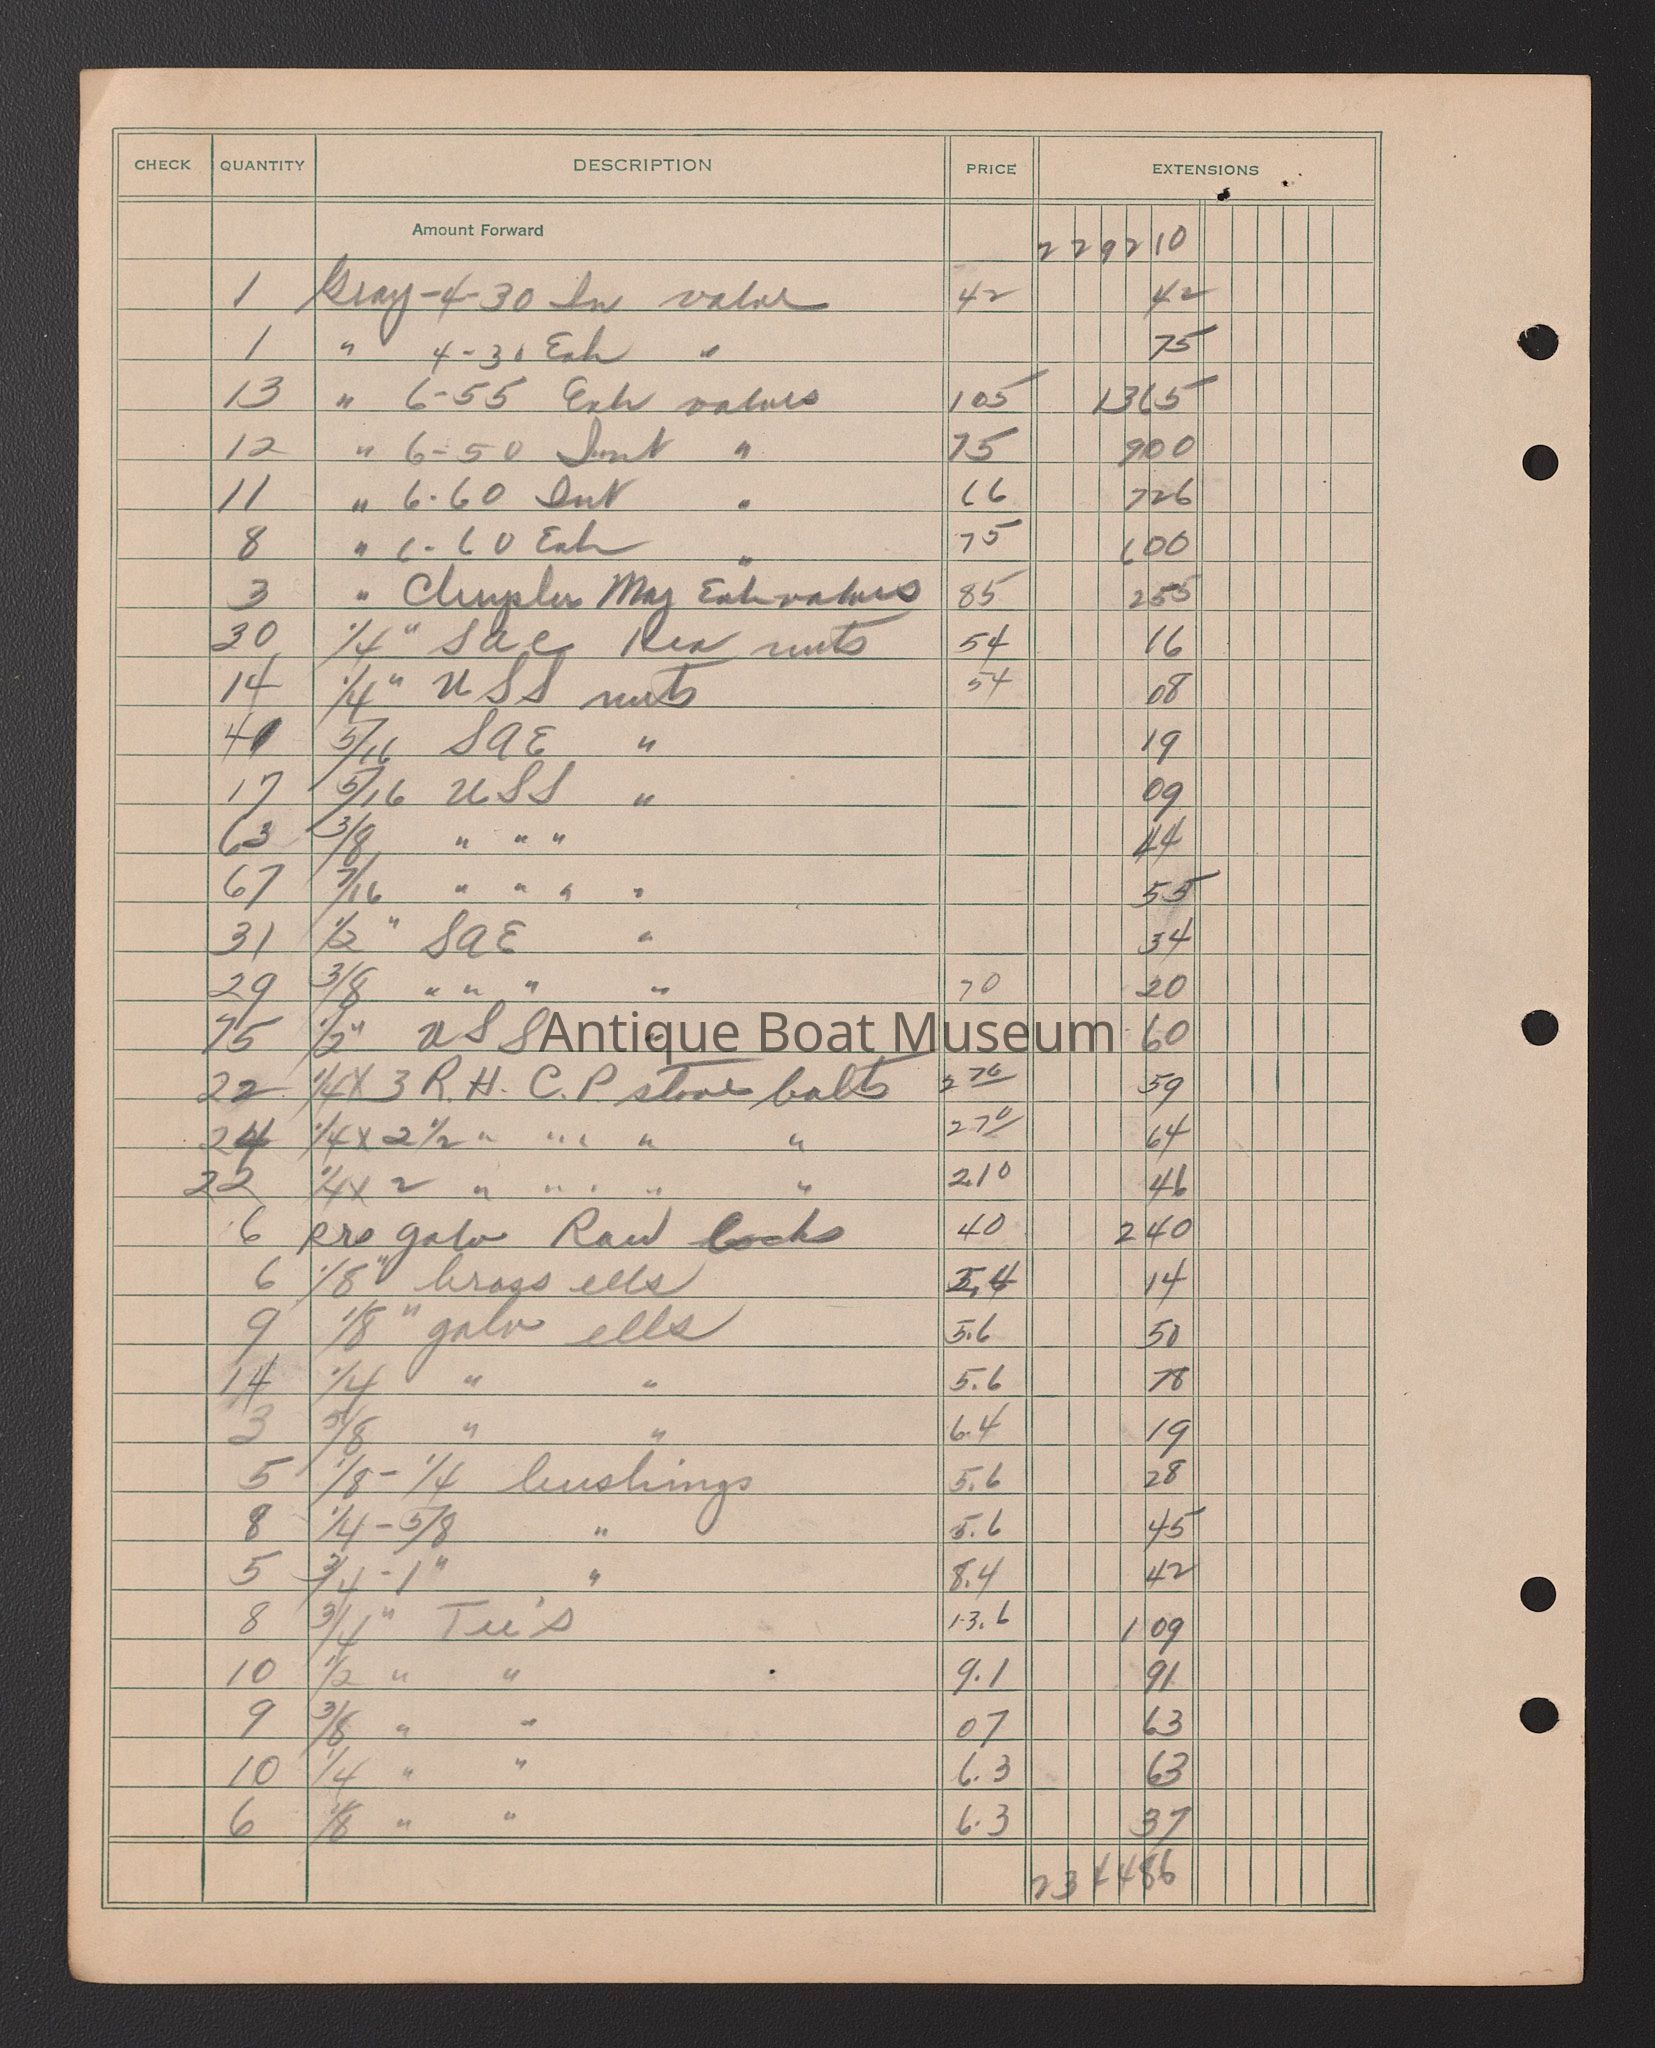 CHECK QUANTITY DESCRIPTION PRICE EXTENSIONS
Amount Forward 2292 10
1 Gray-4-30 In valve 42 42
1 " 4-30 Exh " 75
13 " 6-55 Exh valves 105 1365
12 " 6-50 Int " 75 900
11 " 6-60 Int " 66 726
8 " 6-60 Exh " 75 600
3 " Chrysler Mag Exh valves 85 255
30 1/4" SAE Hex nuts 54 16
14 1/4" USS nuts 54 08
41 5/16 SAE " 19
17 5/16 USS " 09
63 3/8 " " " 44
67 7/16 " " " " 55
31 1/2" SAE " 34
29 3/8 " " " " 70 20
75 1/2" USS " 60
22 1/4 x 3 R.H. C.P stove bolts 270 59
24 1/4 x 2 1/2 " " " " " 270 64
22 1/4 x 2 " " " " " 2.10 46
6 prs galv Row locks 40 240
6 1/8" brass ells 2.4 14
9 1/8" galv ells 5.6 50
14 1/4 " " 5.6 78
3 3/8 " " 6.4 19
5 1/8 - 1/4 bushings 5.6 28
8 1/4 - 3/8 " 5.6 45
5 3/4 - 1" " 8.4 42
8 3/4" Tee's 13.6 1 09
10 1/2 " " 9.1 91
9 3/8 " " 07 63
10 1/4 " " 6.3 63
6 1/8 " " 6.3 37
2344 86
Antique Boat Museum